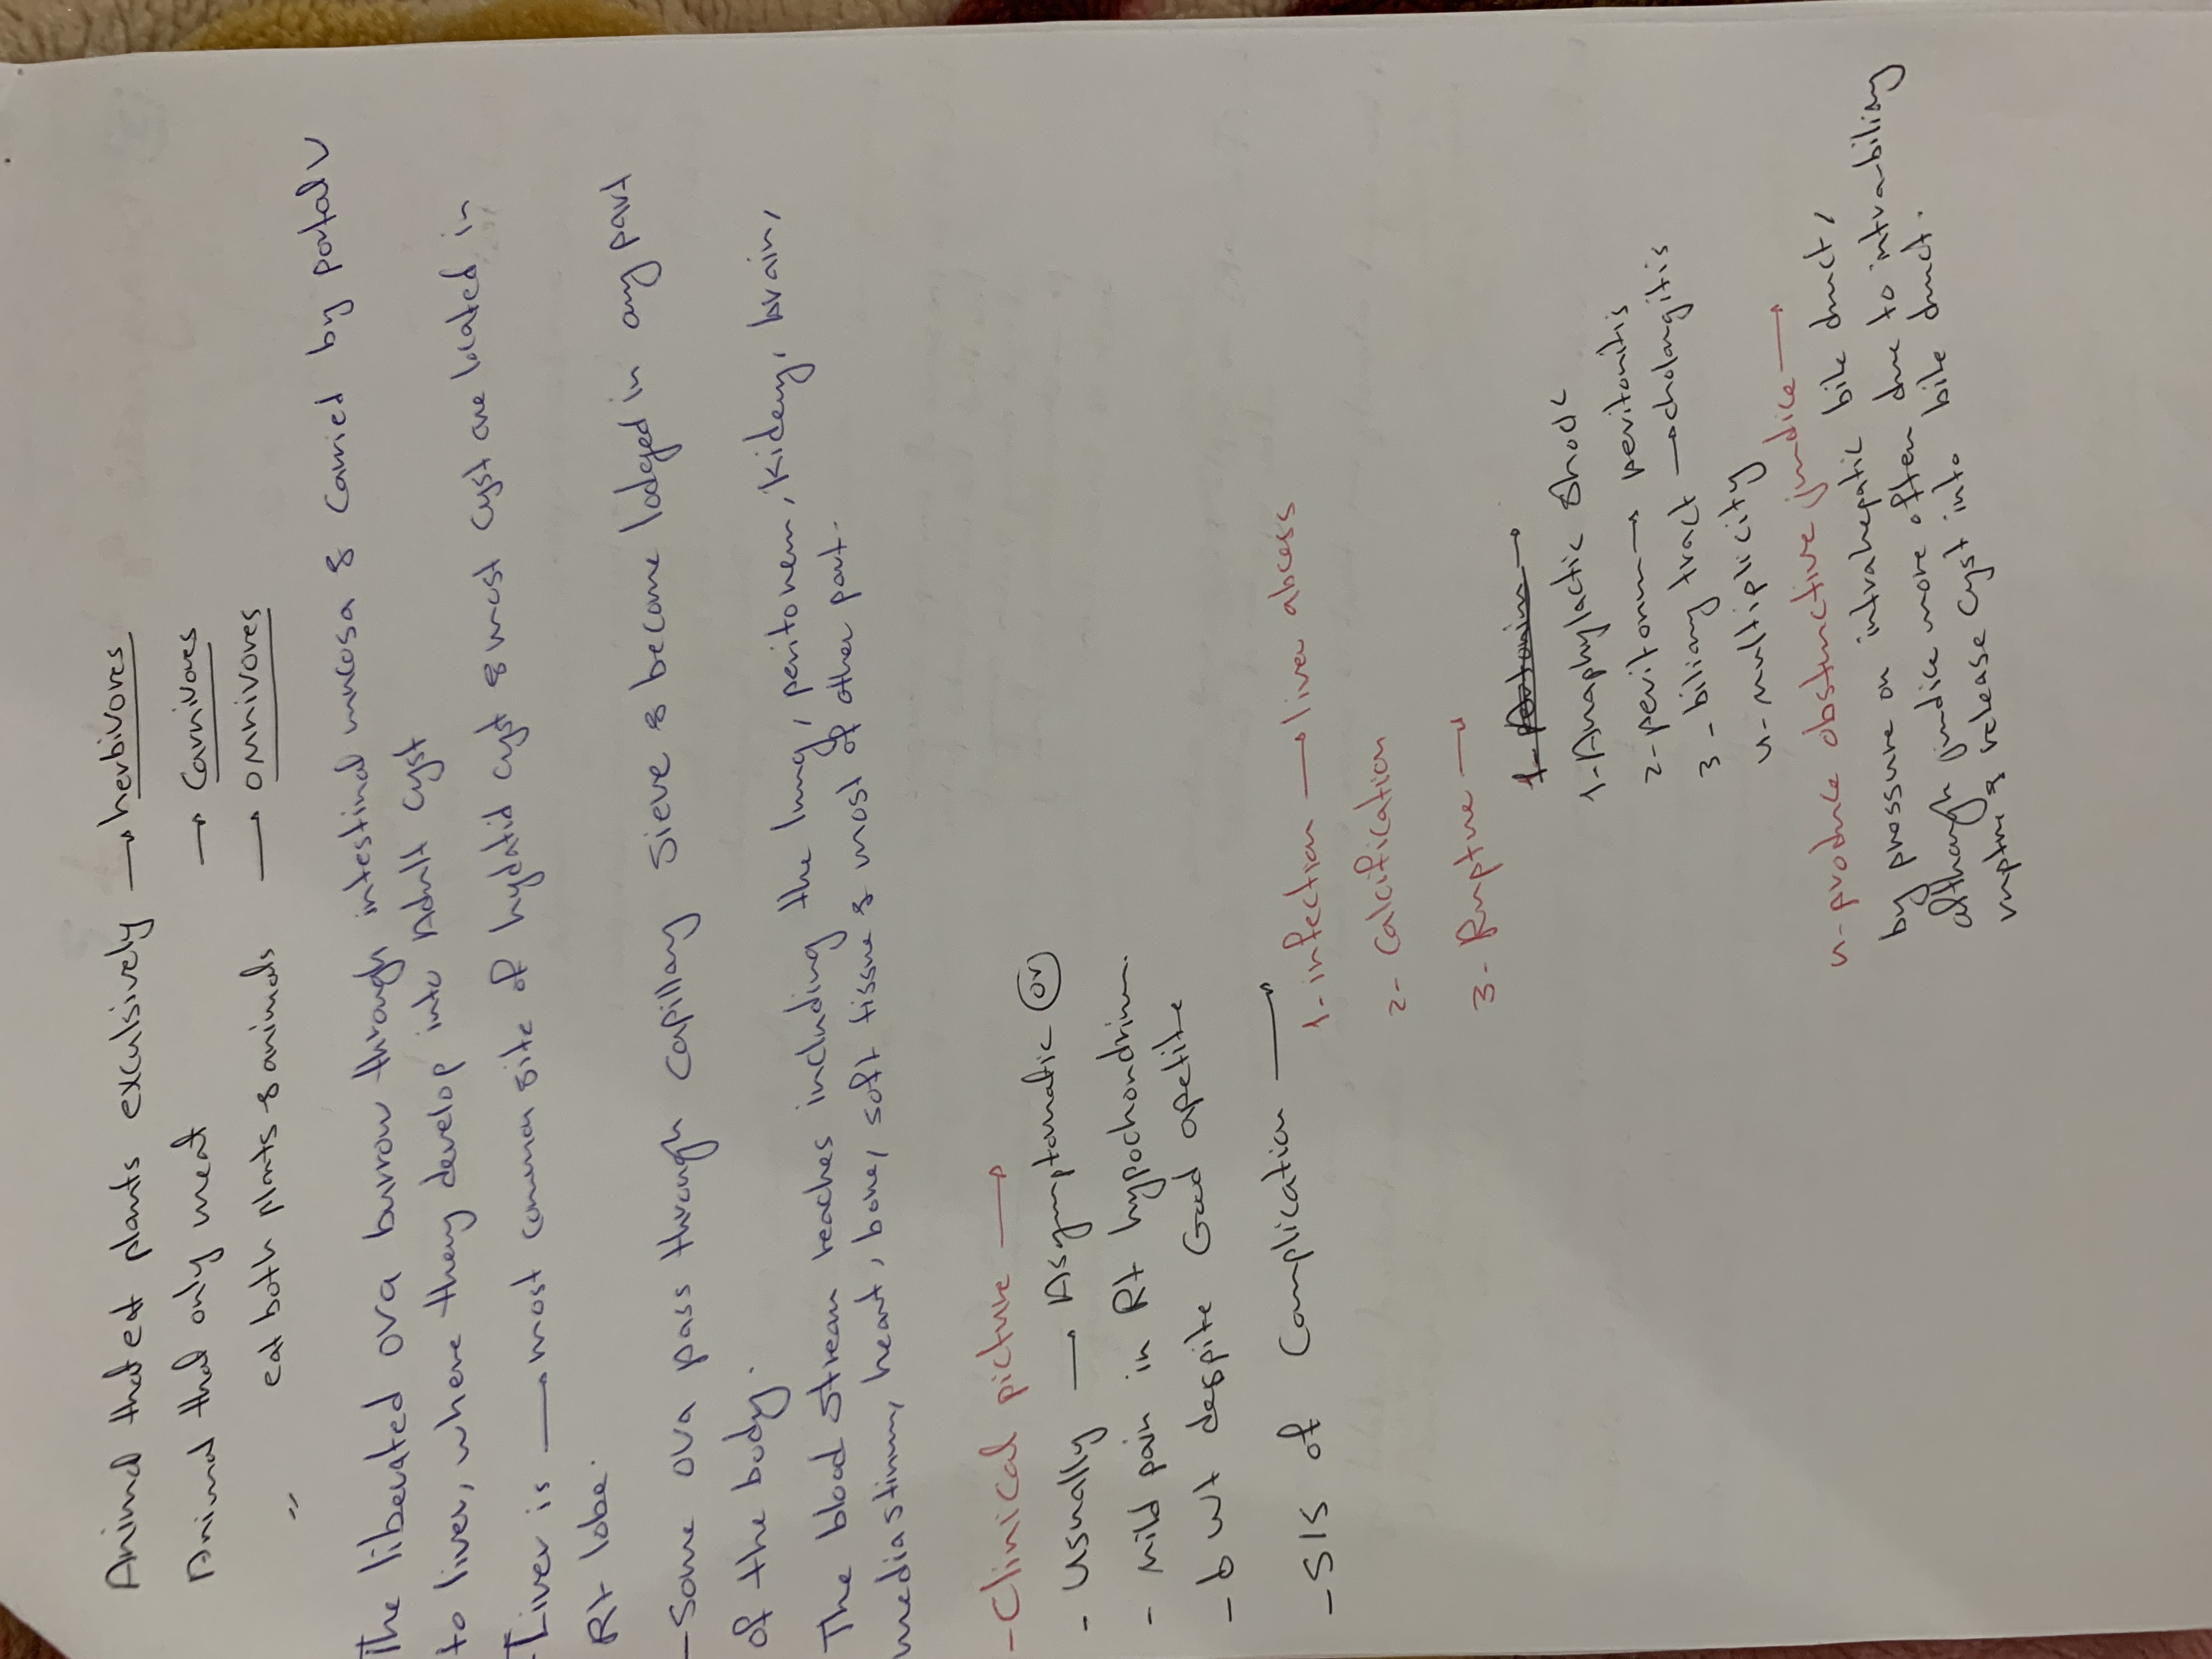 Animal that eat plants exculsively → herbivores
Animal that only meat → Carnivores
" eat both plants & animals → omnivores
The liberated ova burrow through intestinal mucosa & carried by portal V
to liver, where they develop into Adult cyst
- Liver is → most common site of hydatid cyst & most cyst are located in
Rt lobe.
- Some ova pass through capillary Sieve & become lodged in any part
of the body.
The blood stream reaches including the lung, peritonem, kideny, brain,
mediastinum, heart, bone, soft tissue & most of other part.
- Clinical picture →
- usually → Asymptomatic (or)
- mild pain in Rt hypochondrium.
- but despite Good apetite
- SIS of Complication →
1- infection → liver abcess
2- Calcification
3- Rupture →
1- Anaphylactic Shock
2- peritonum → peritonitis
3- biliary tract → cholangitis
4- multiplicity
4- produce obstructive jundice →
by pressure on intrahepatic bile duct,
although jundice more often due to intrabiliary
rupture & release cyst into bile duct.